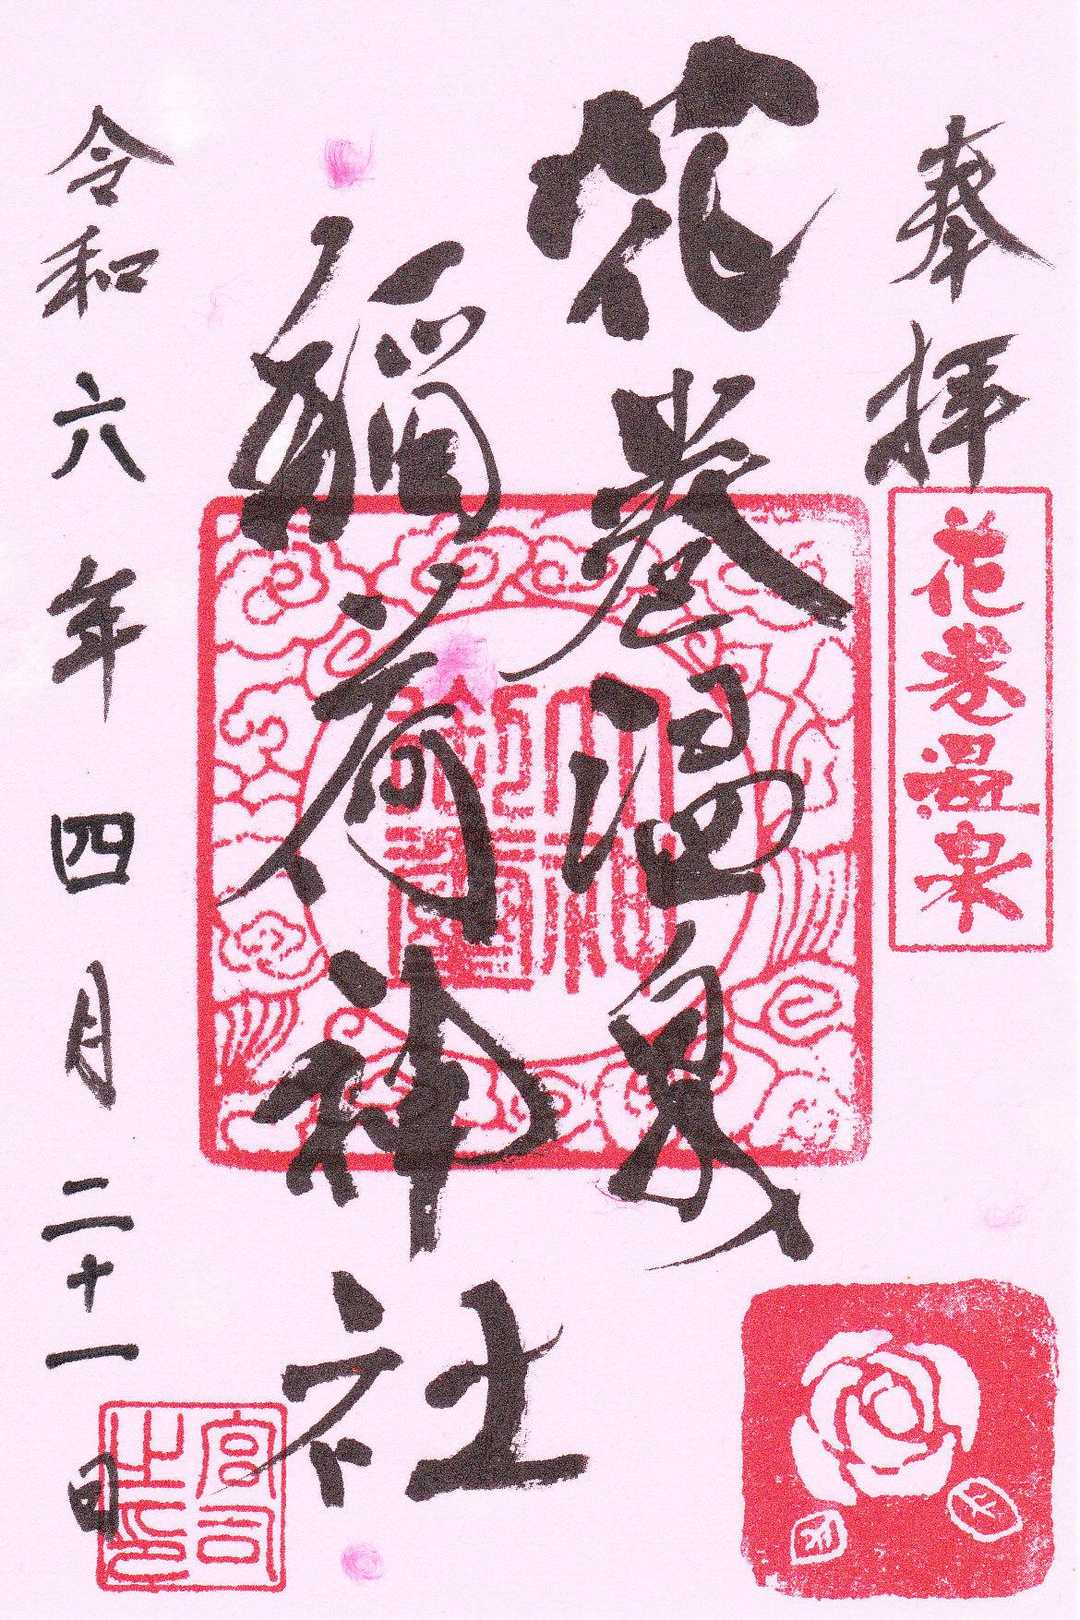 奉拝
花巻温泉
花巻温泉
稲荷神社
令和六年四月二十一日
宮司之印